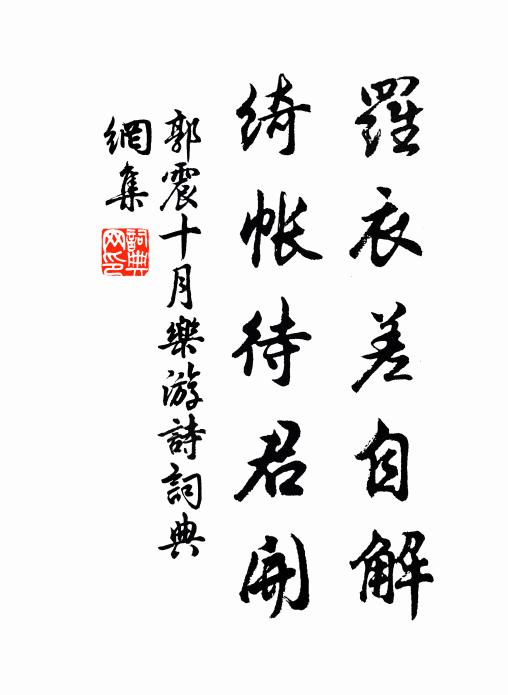 羅衣差自解
綺帳待君開
郭震十月樂游詩詞典
網集
詞典網印